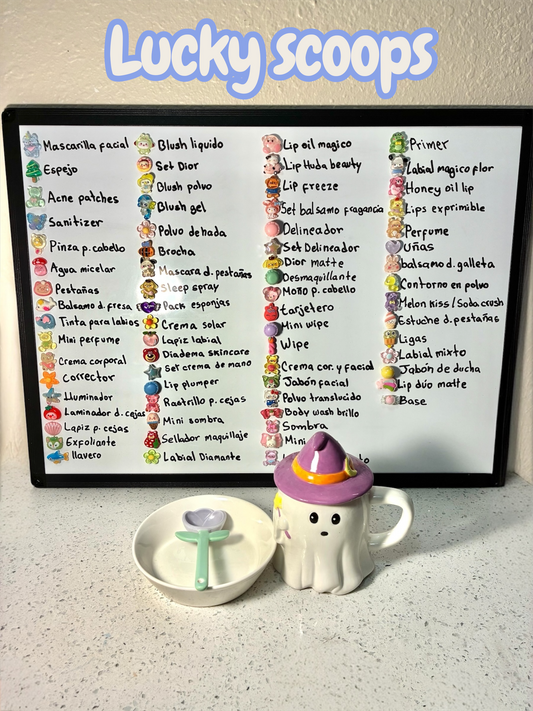 Lucky scoops
Mascarilla facial
Espejo
Acne patches
Sanitizer
Pinza p. cabello
Agua micelar
Pestañas
Balsamo d. fresa
Tinta para labios
Mini perfume
Crema corporal
Corrector
Iluminador
Laminador d. cejas
Lapiz p. cejas
Exfoliante
llavero
Blush liquido
Set Dior
Blush polvo
Blush gel
Polvo de hada
Brocha
Mascara d. pestañas
Sleep spray
Pack esponjas
Crema solar
Lapiz labial
Diadema skincare
Set crema de mano
Lip plumper
Rastrillo p. cejas
Mini sombra
Sellador maquillaje
Labial Diamante
Lip oil magico
Lip Huda beauty
Lip freeze
Set balsamo fragancia
Delineador
Set Delineador
Dior matte
Desmaquillante
Moño p. cabello
tarjetero
Mini wipe
Wipe
Crema cor. y facial
Jabón facial
Polvo translucido
Body wash brillo
Sombra
Mini
Primer
Labial magico flor
Honey oil lip
Lips exprimible
Perfume
Uñas
balsamo d. galleta
Contorno en polvo
Melon kiss / Soda crush
Estuche d. pestañas
Ligas
Labial mixto
Jabón de ducha
Lip dúo matte
Base